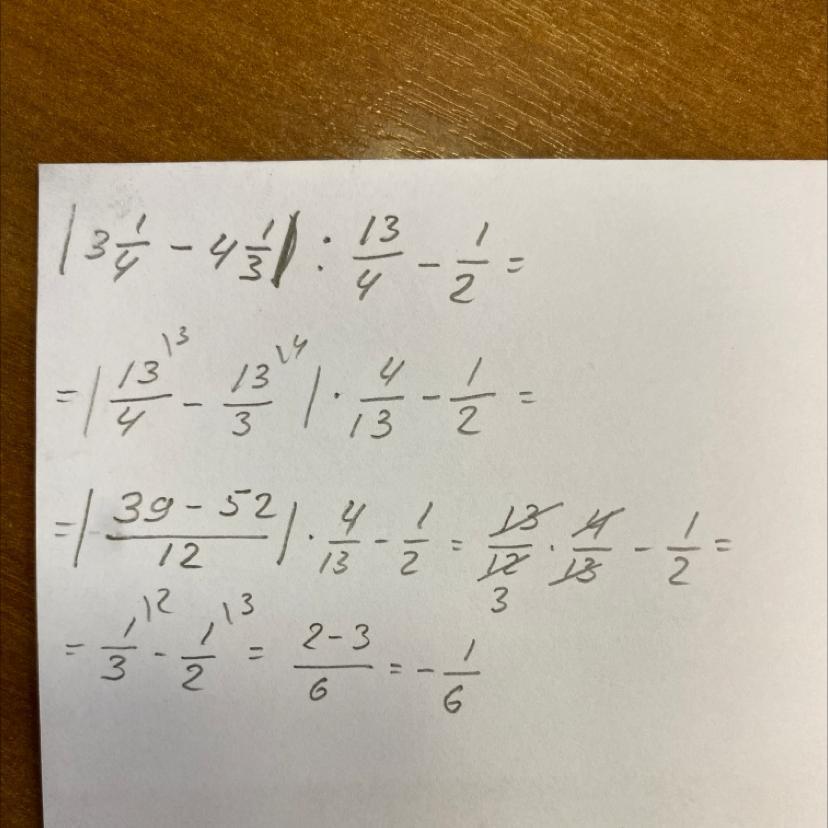 |3 1/4 - 4 1/3| : 13/4 - 1/2 =
= |13/4 \3 - 13/3 \4| · 4/13 - 1/2 =
= |39 - 52/12| · 4/13 - 1/2 = 13/12 3 · 4/13 - 1/2 =
= 1/3 \2 - 1/2 \3 = 2-3/6 = - 1/6